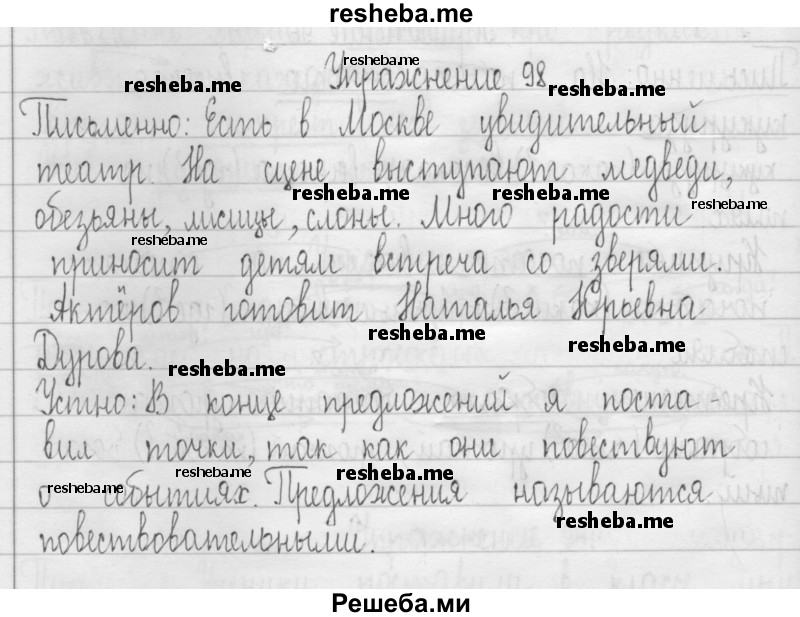 resheba.me
Упражнение 98
resheba.me
resheba.me
resheba.me
Письменно: Есть в Москве увидительный
театр. На сцене выступают медведи,
resheba.me
resheba.me
resheba.me
обезьяны, лисицы, слоны. Много радости
resheba.me
приносит детям встреча со зверями.
Актёров готовит Наталья Юрьевна
resheba.me
resheba.me
Дурова.
resheba.me
Устно: В конце предложений я поста-
вил точки, так как они повествуют
resheba.me
resheba.me
resheba.me
о событиях. Предложения называются
resheba.me
повествовательными.
Решеба.ми